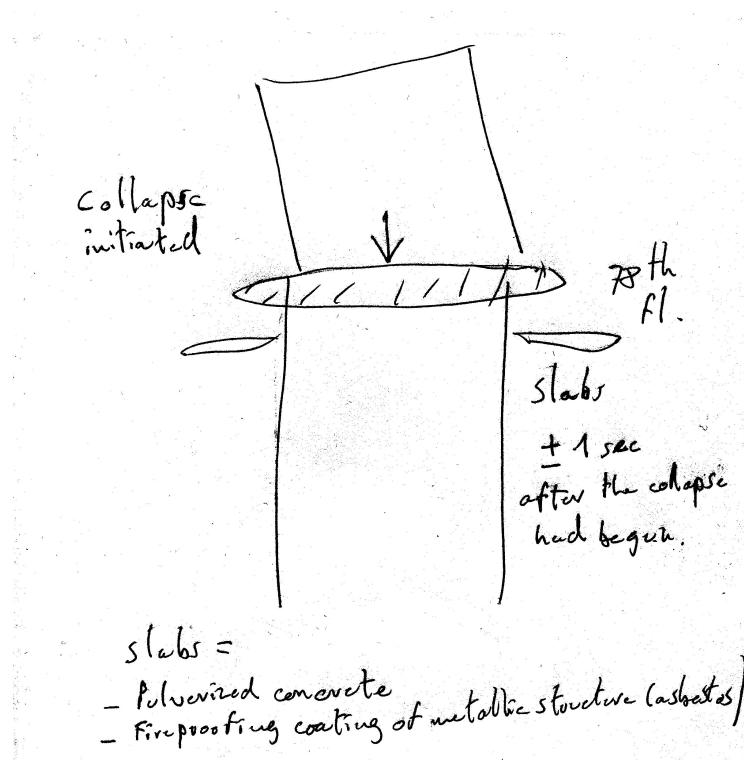 collapse
initiated
78th
fl.
slabs
± 1 sec
after the collapse
had begun.
slabs =
- Pulverized concrete
- Fireproofing coating of metallic structure (asbestos)